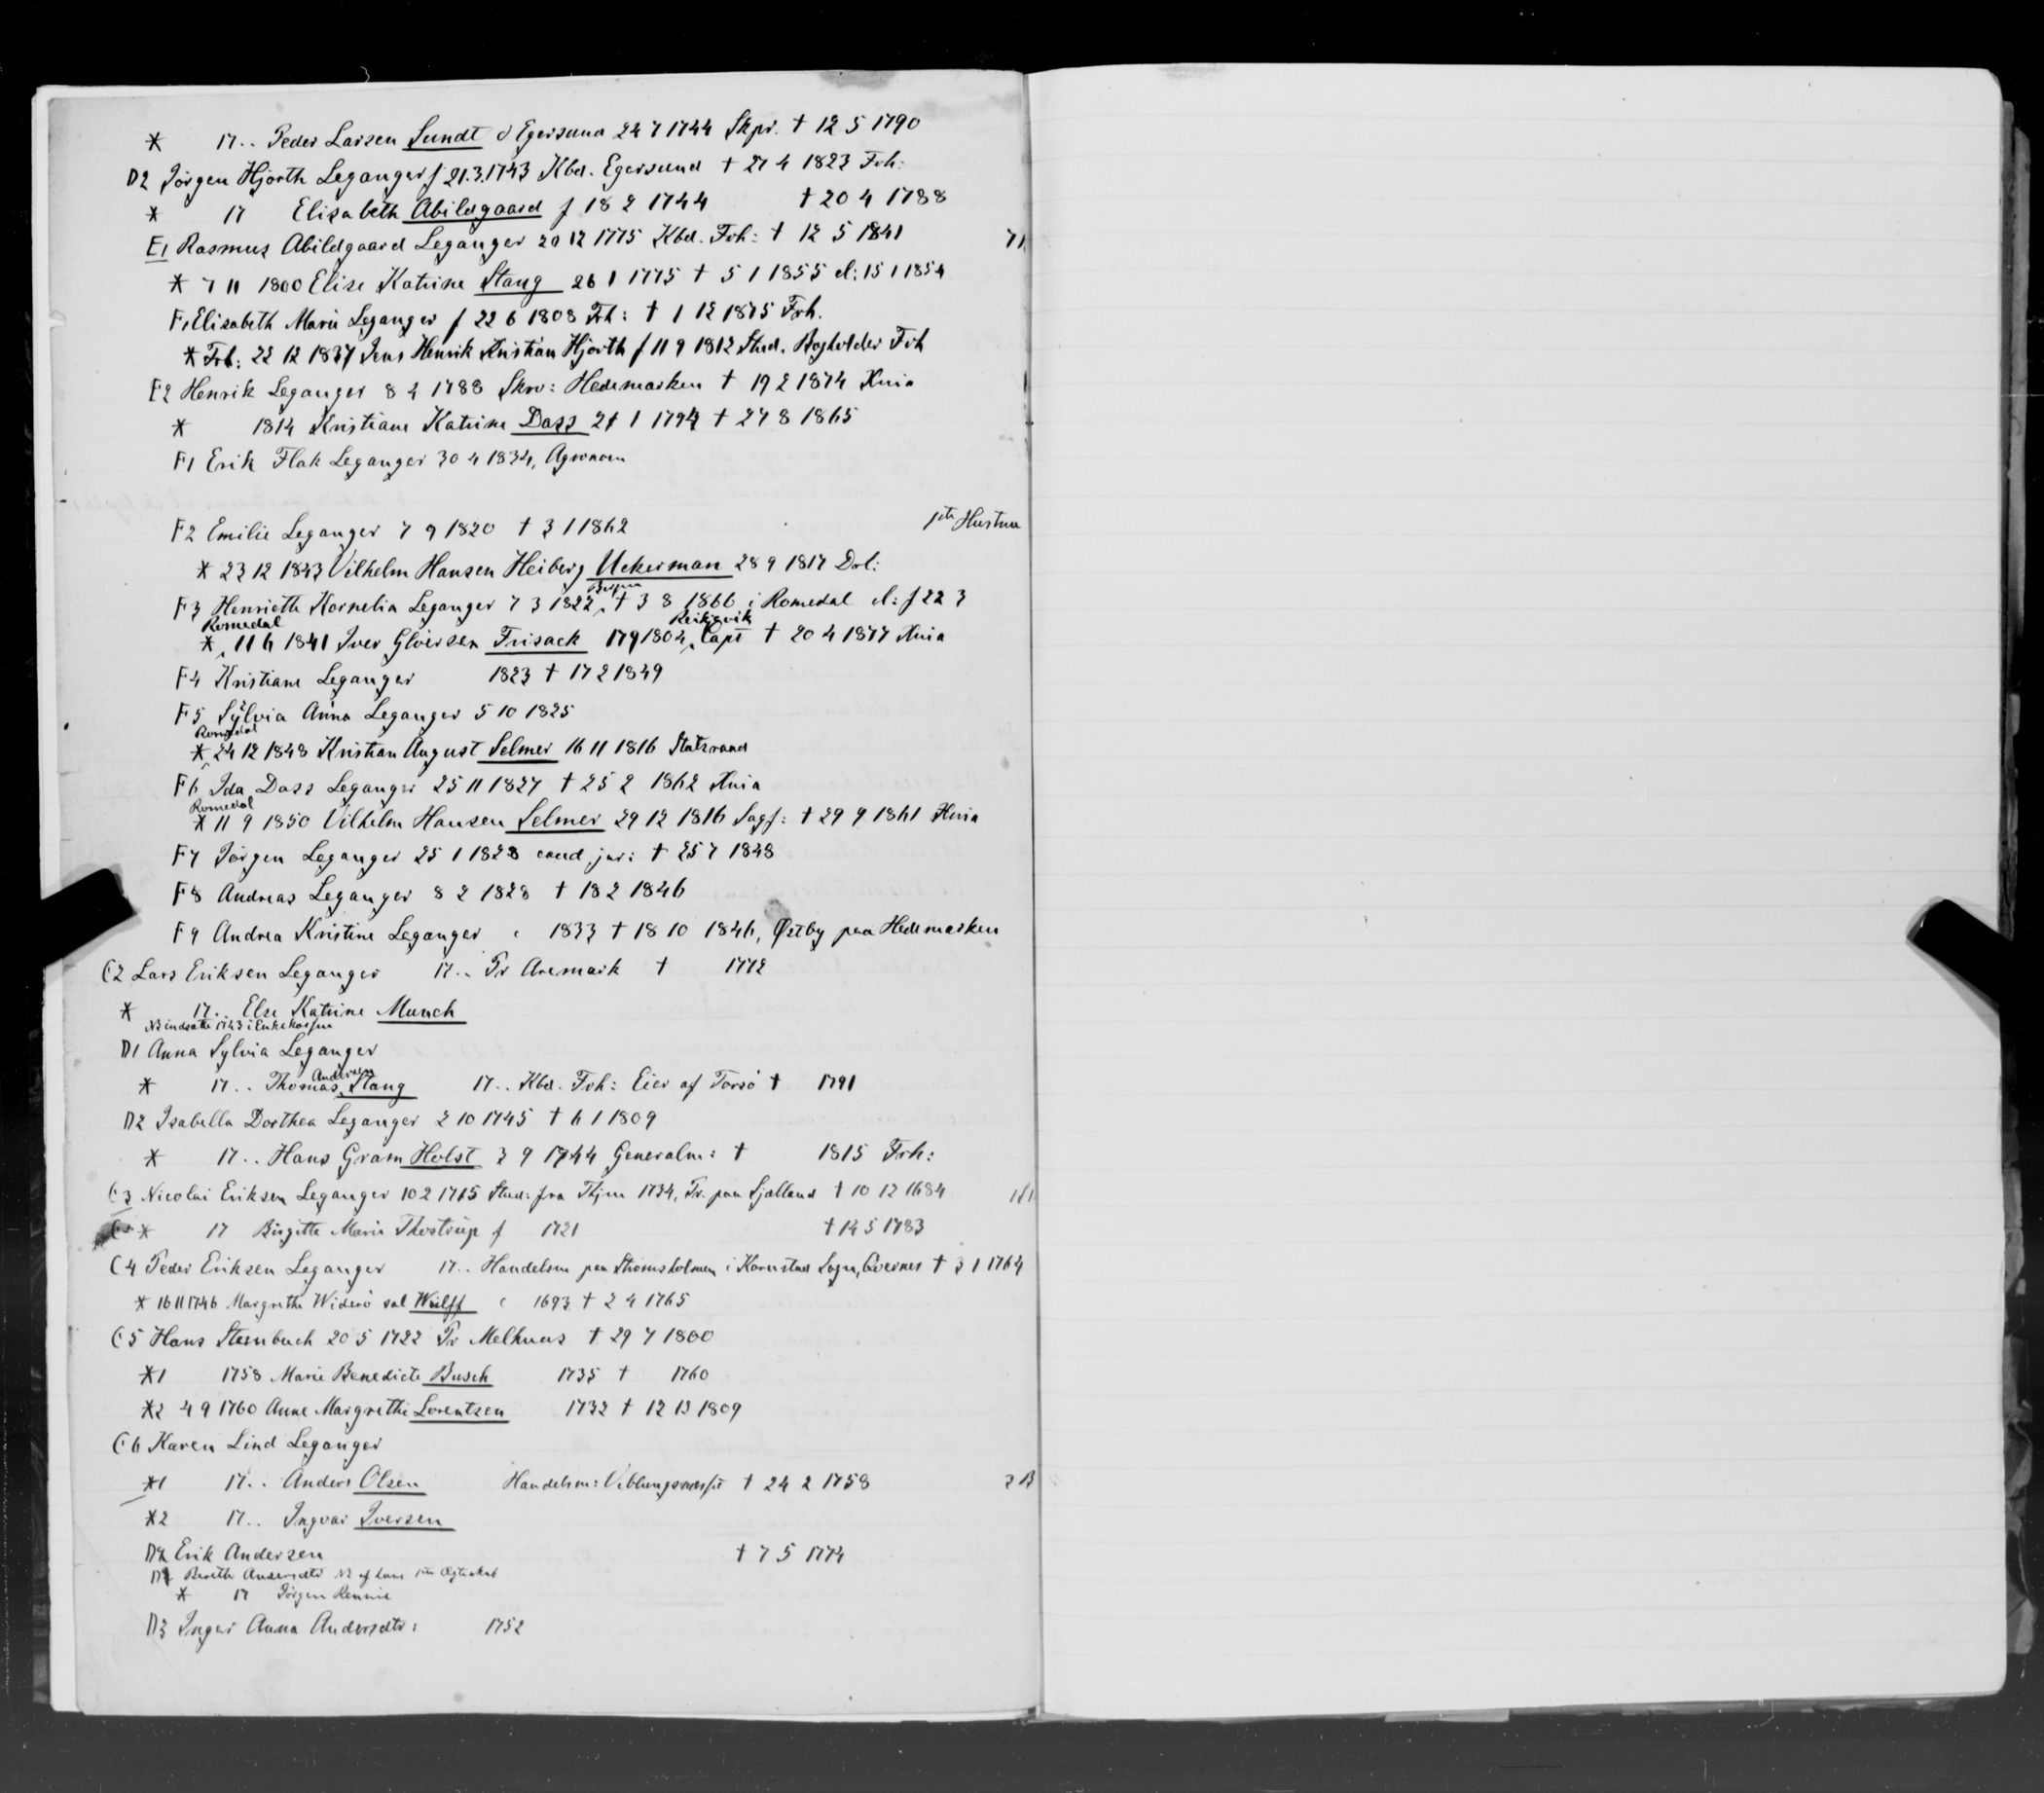 * 17.. Peder Larsen Sundt i Egersund 24 7 1744 Skpr. † 12 5 1790
D2 Jörgen Hjorth Leganger f 21.3.1743 Kbd. Egersund † 27 4 1823 Frh:
* 17 Elisabeth Abildgaard f 18 2 1744 † 20 4 1788
E1 Rasmus Abildgaard Leganger 20 12 1775 Kbd. Frh: † 12 5 1841
* 7 11 1800 Elise Katrine Stang 26 1 1775 † 5 1 1855 el: 15 1 1854
F1 Elisabeth Marie Leganger f 22 6 1808 Frh: † 1 12 1875 Frh.
* Frh: 22 12 1837 Jens Henrik Kristian Hjorth f 11 9 1812 Stud. Bogholder Frh
E2 Henrik Leganger 8 4 1788 Skrv: Hedemarken † 19 2 1874 Xnia
* 1814 Kristiane Katrine Dass 21 1 1794 † 27 8 1865
F1 Erik Flak Leganger 30 4 1834, Agronom
F2 Emilie Leganger 7 9 1820 † 3 1 1862 1ste Hustru
* 23 12 1843 Vilhelm Hansen Heiberg Uckerman 28 9 1817 Drl:
F3 Henriette Kornelia Leganger 7 3 1822, Bergen † 3 8 1866 i Romedal el: f 22 3
* Romedal 11 6 1841 Iver Glöersen Frisack 17 9 1804, Reikjavik Capt † 20 4 1877 Xnia
F4 Kristiane Leganger 1823 † 17 2 1849
F5 Sylvia Anna Leganger 5 10 1825
* Romedal 24 12 1848 Kristian August Selmer 16 11 1816 Statsraad
F6 Ida Dass Leganger 25 11 1827 † 25 2 1862 Xnia
Romedal
* 11 9 1850 Vilhelm Hansen Selmer 29 12 1816 Sagf: † 29 9 1861 Xnia
F7 Jörgen Leganger 25 1 1828 cand jur: † 25 7 1848
F8 Andreas Leganger 8 2 1828 † 18 2 1846
F9 Andrea Kristine Leganger c 1833 † 18 10 1846, Østby paa Hedemarken
C2 Lars Eriksen Leganger 17.. Pr Aremark † 1772
* 17.. Else Katrine Munch
N2 indsatte 1743 i Enkekassen
D1 Anna Sylvia Leganger
* 17.. Thomas Andersen Stang 17.. Kbd. Frh: Eier af Torsö † 1791
D2 Isabella Dorthea Leganger 2 10 1745 † 6 1 1809
* 17.. Hans Gram Holst 3 9 1744 Generalm: † 1815 Frh:
C3 Nicolai Eriksen Leganger 10 2 1715 Stud: fra Thjm 1734, Pr. paa Sjælland † 10 12 1684
* 17 Birgitte Marie Thostrup f 1721 † 14 5 1783
C4 Peder Eriksen Leganger 17.. Handelsm paa Stromsholmen i Kornstad Sogn, † 3 1 1764
* 16 11 1746 Margrethe Widerö sal Wulff c 1693 † 2 4 1765
C5 Hans Steenbuch 20 5 1722 Pr Melhuus † 29 7 1800
*1 1758 Marie Benedicte Busch 1735 † 1760
*2 4 9 1760 Anne Margrethe Lorentzen 1732 † 12 13 1809
C6 Karen Lind Leganger
*1 17.. Anders Olsen Handelsm: † 24 2 1758
*2 17.. Ingvar Iversen
D2 Erik Andersen † 7 5 1774
D1 Berith Andersdtr N2 af hans 1ste Ægteskab
* 17 Jörgen Rennie
D3 Inger Anna Andersdtr: 1752